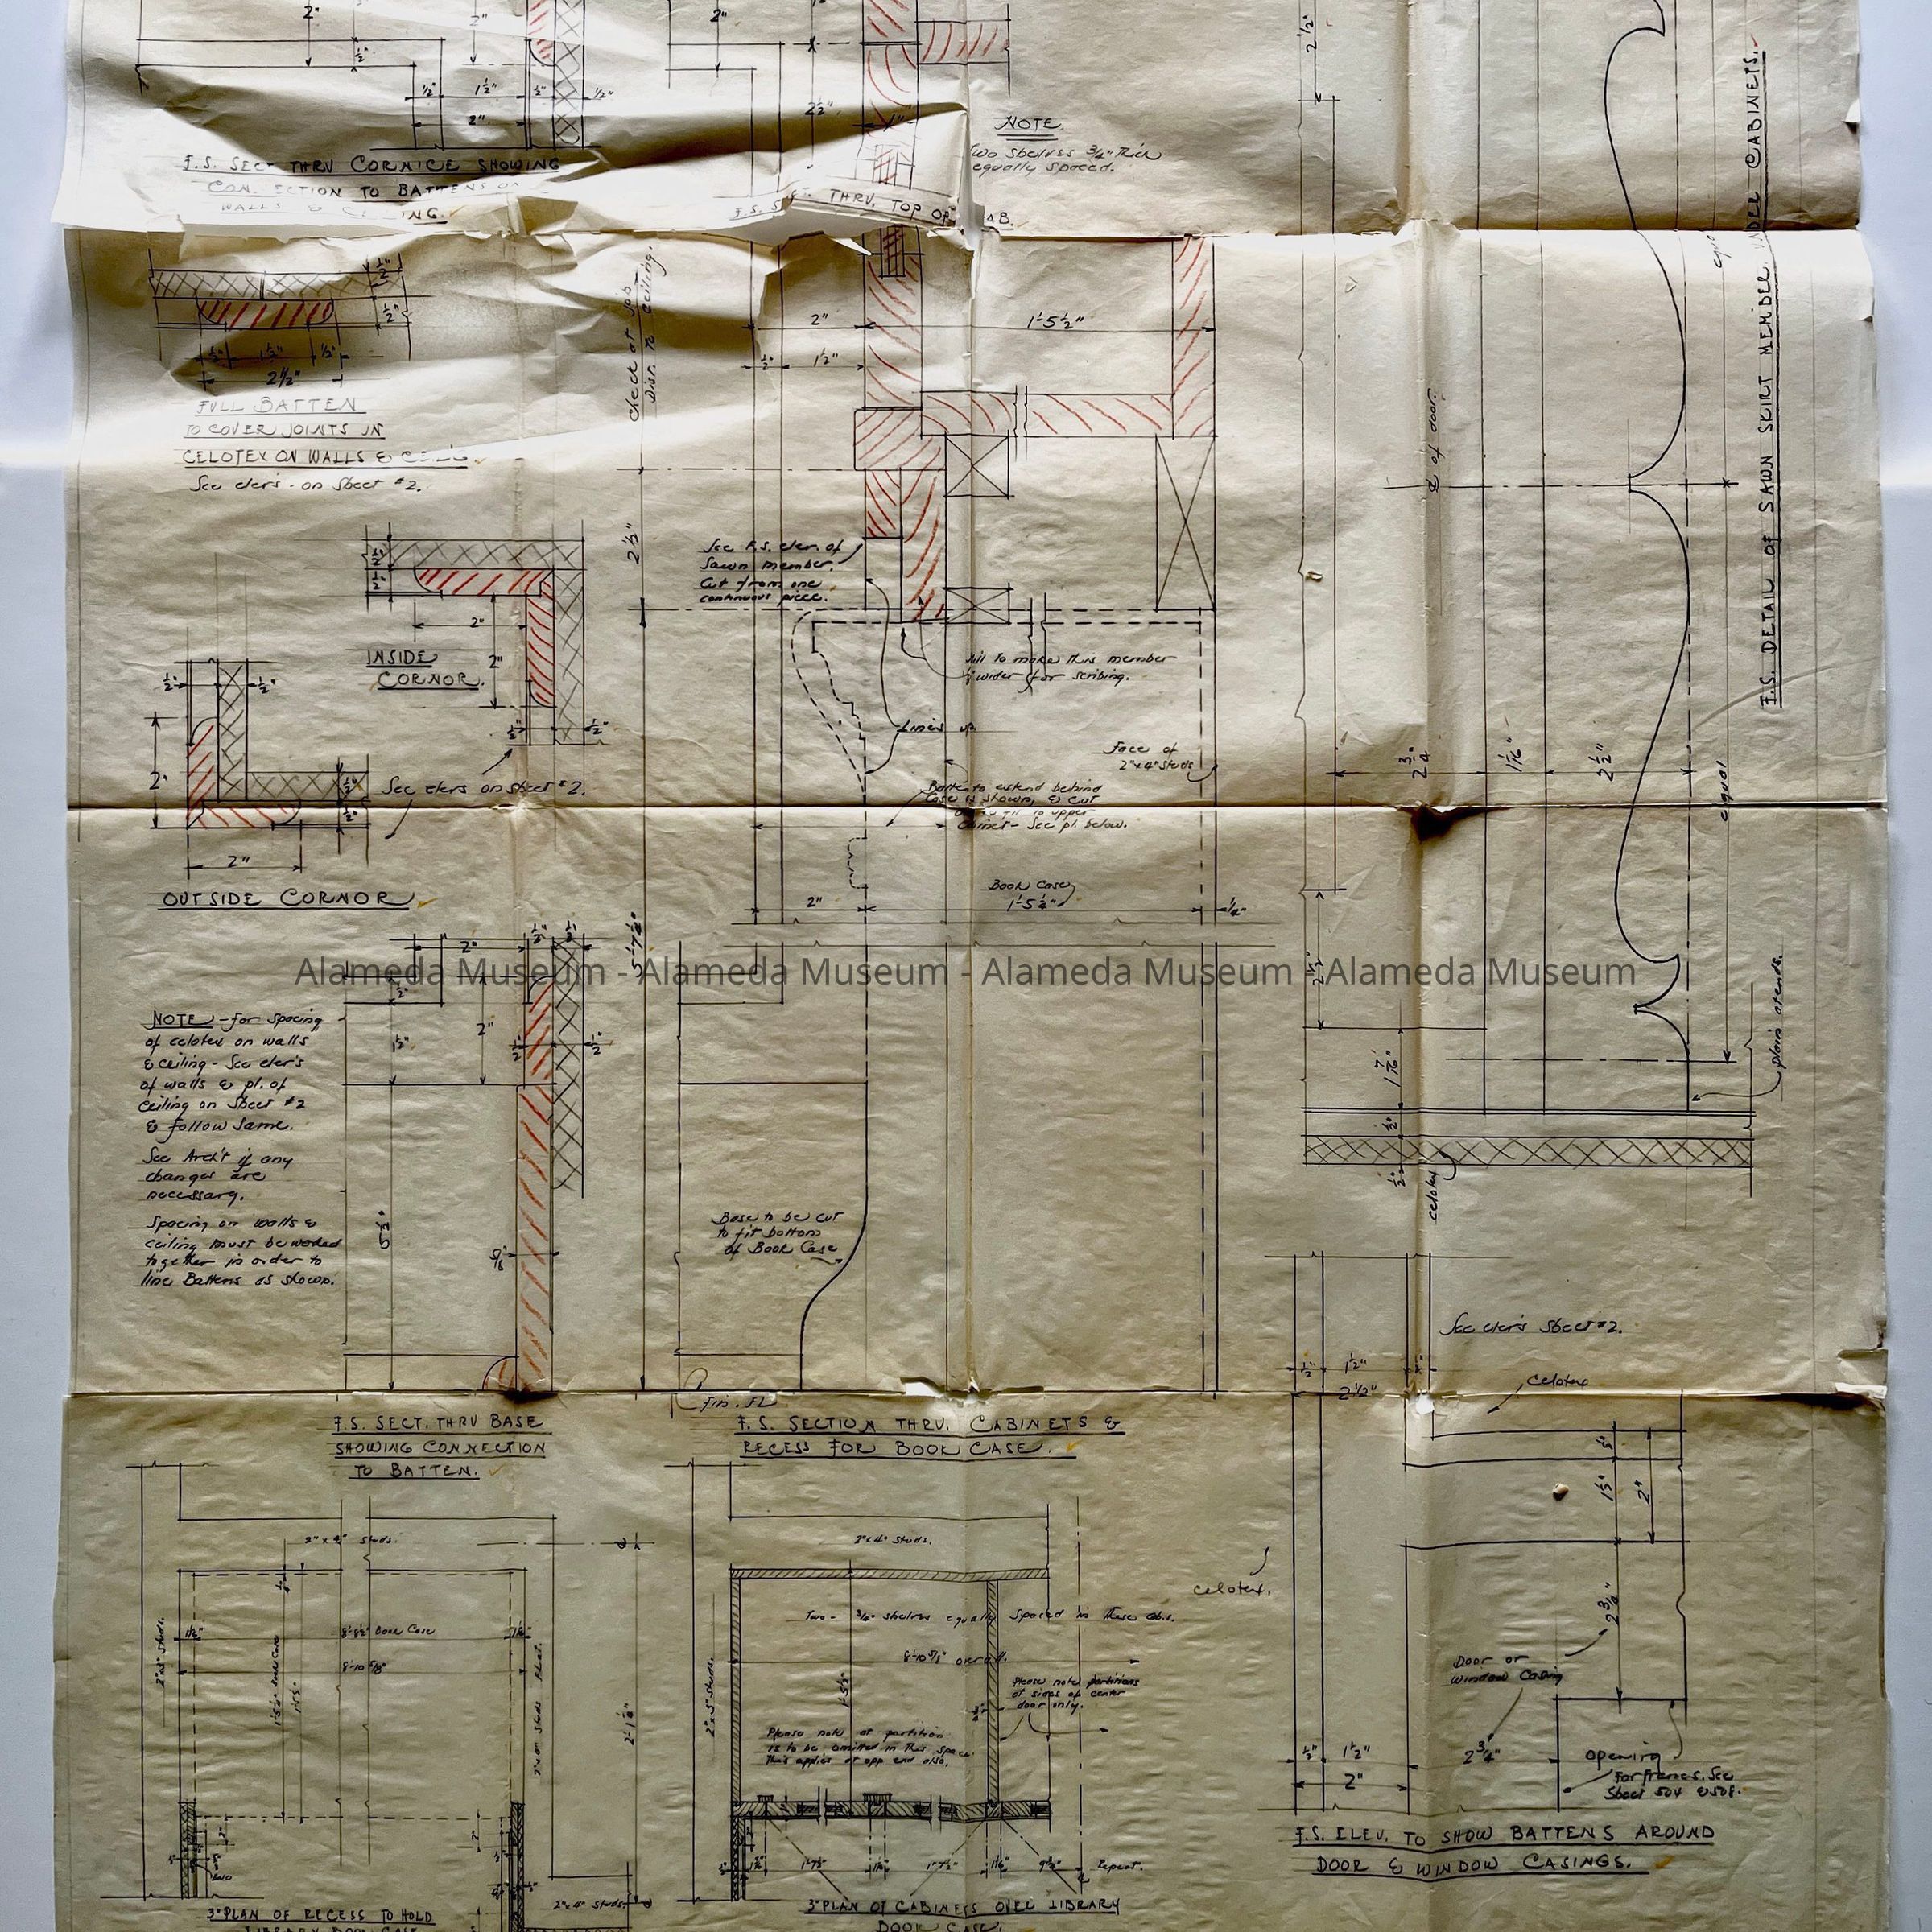 F.S. SECT. THRU CORNICE SHOWING
CON ECTION TO BATTENS
WALLS &
F.S. THRU. TOP OF AB.
NOTE
Two Shelves 3/4" Thick
equally Spaced.
2"
2"
2"
1/2"
1 1/2"
1/2"
2"
2 1/2"
2 1/2"
1"
1/2"
1 1/2"
1/2"
2 1/2"
FULL BATTEN
TO COVER JOINTS IN
CELOTEX ON WALLS &
See elev's. on Sheet #2.
Check at job
Dist. to Ceiling.
2"
1'-5 1/2"
1/2"
1 1/2"
See F.S. elev. of
Sawn member.
Cut from one
continuous piece.
INSIDE
CORNOR.
2"
2"
2"
2"
See elevs on sheet #2.
OUTSIDE CORNOR
Mill to make this member
wider for scribing.
Lines up.
Face of
2"x4" Studs
Batten to extend behind
Case as shown, & cut
to upper
Cabinet - See pl. below.
Book Case
1'-5 1/4"
2"
1/4"
℄ of door.
F.S. DETAIL OF SAWN SKIRT MEMBER UNDER CABINETS.
2 3/4"
1 1/16"
2 1/2"
equal
2 1/2"
1 7/16"
1/2"
1/2"
plain at ends.
celotex
Alameda Museum - Alameda Museum - Alameda Museum - Alameda Museum
NOTE - for Spacing
of celotex on walls
& ceiling - See elev's
of walls & pl. of
ceiling on Sheet #2
& follow same.
See Arch't if any
changes are
necessary.
Spacing on walls &
ceiling must be worked
together in order to
line Battens as shown.
2"
2"
1 1/2"
5 1/2"
5/8"
5'-7 1/2"
Base to be cut
to fit bottom
of Book Case
Fin. FL
F.S. SECT. THRU BASE
SHOWING CONNECTION
TO BATTEN.
F.S. SECTION THRU. CABINETS &
RECESS FOR BOOK CASE.
See elev's sheet #2.
Celotex
1/2"
1 1/2"
2 1/2"
1 1/2"
2"
2 3/4"
celotex.
Door or
Window Casing
1/2"
1 1/2"
2"
2 3/4"
opening
For frames. See
Sheet 504 & 508.
F.S. ELEV. TO SHOW BATTENS AROUND
DOOR & WINDOW CASINGS.
2" x 4" Studs.
8'-8 1/2" Book Case
8'-10 5/8"
2'-1 1/8"
2"x4" Studs.
3" PLAN OF RECESS TO HOLD
LIBRARY BOOK CASE
2"x4" Studs.
2"x5" Studs.
Two - 3/4" shelves equally Spaced in these cabs.
8'-10 5/8" overall.
1'-5 1/2"
Please note partitions
at sides of center
door only.
Please note at partition
is to be omitted in this Space.
This applies at opp. end also.
1'-7 1/2"
1'-7 1/2"
9 3/4"
Repeat.
3" PLAN OF CABINETS OVER LIBRARY
BOOK CASE.